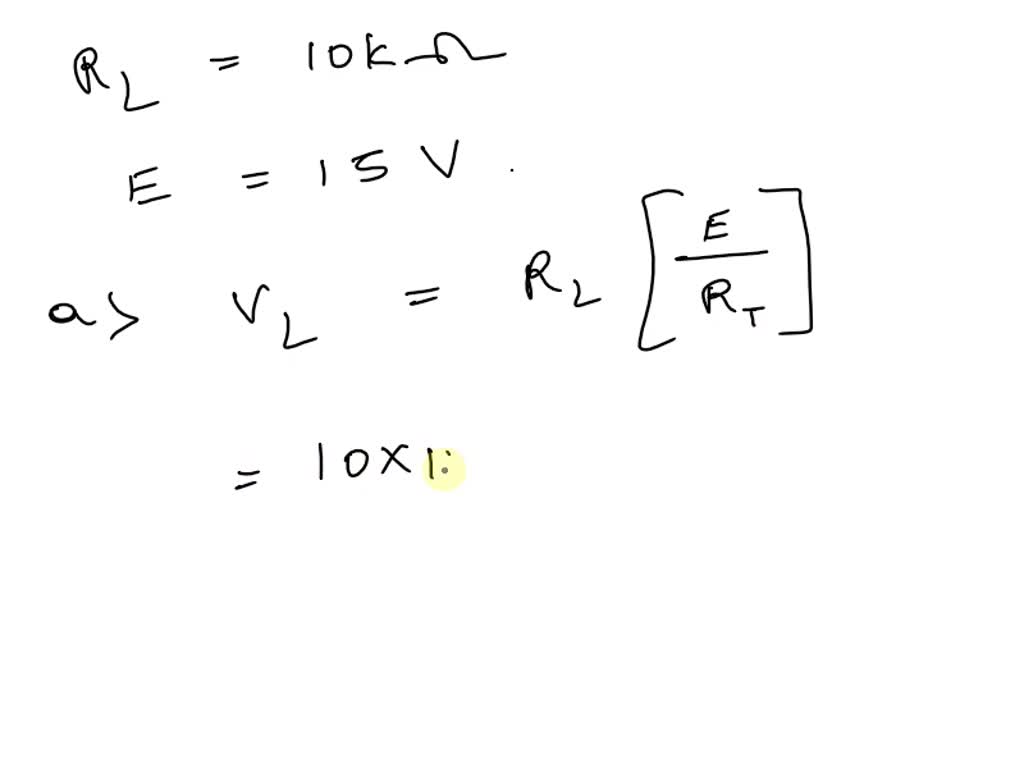 R_L = 10kΩ
E = 15 V .
a> V_L = R_L [ E / R_T ]
= 10 × 1